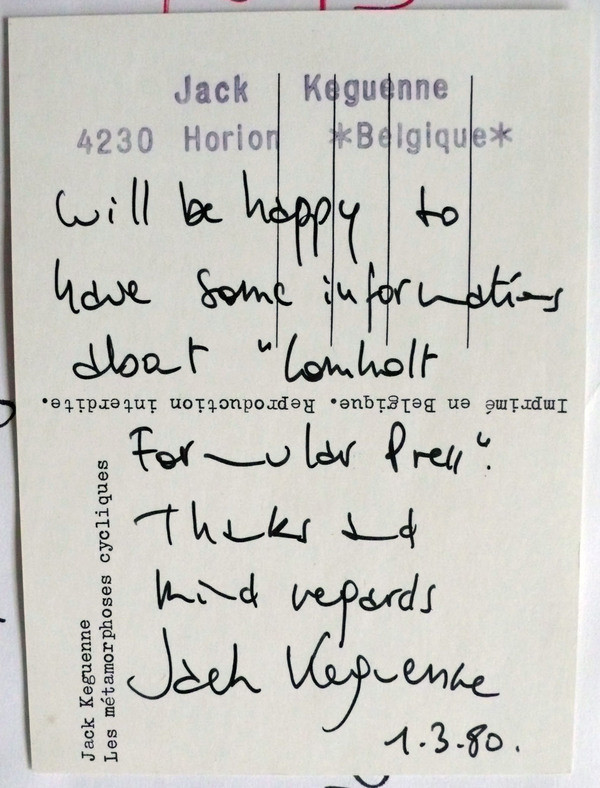 Jack Keguenne
4230 Horion *Belgique*
will be happy to
have some informations
about "Lomholt
Imprimé en Belgique. Reproduction interdite.
Formular Press".
Thanks and
kind regards
Jack Keguenne
1.3.80.
Jack Keguenne
Les métamorphoses cycliques